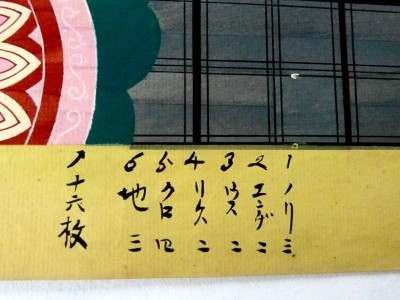 1 ノリ 三
2 エンジ 二
3 ウス 二
4 リクス 二
5 クロ 四
6 地 三
↗ 十六枚